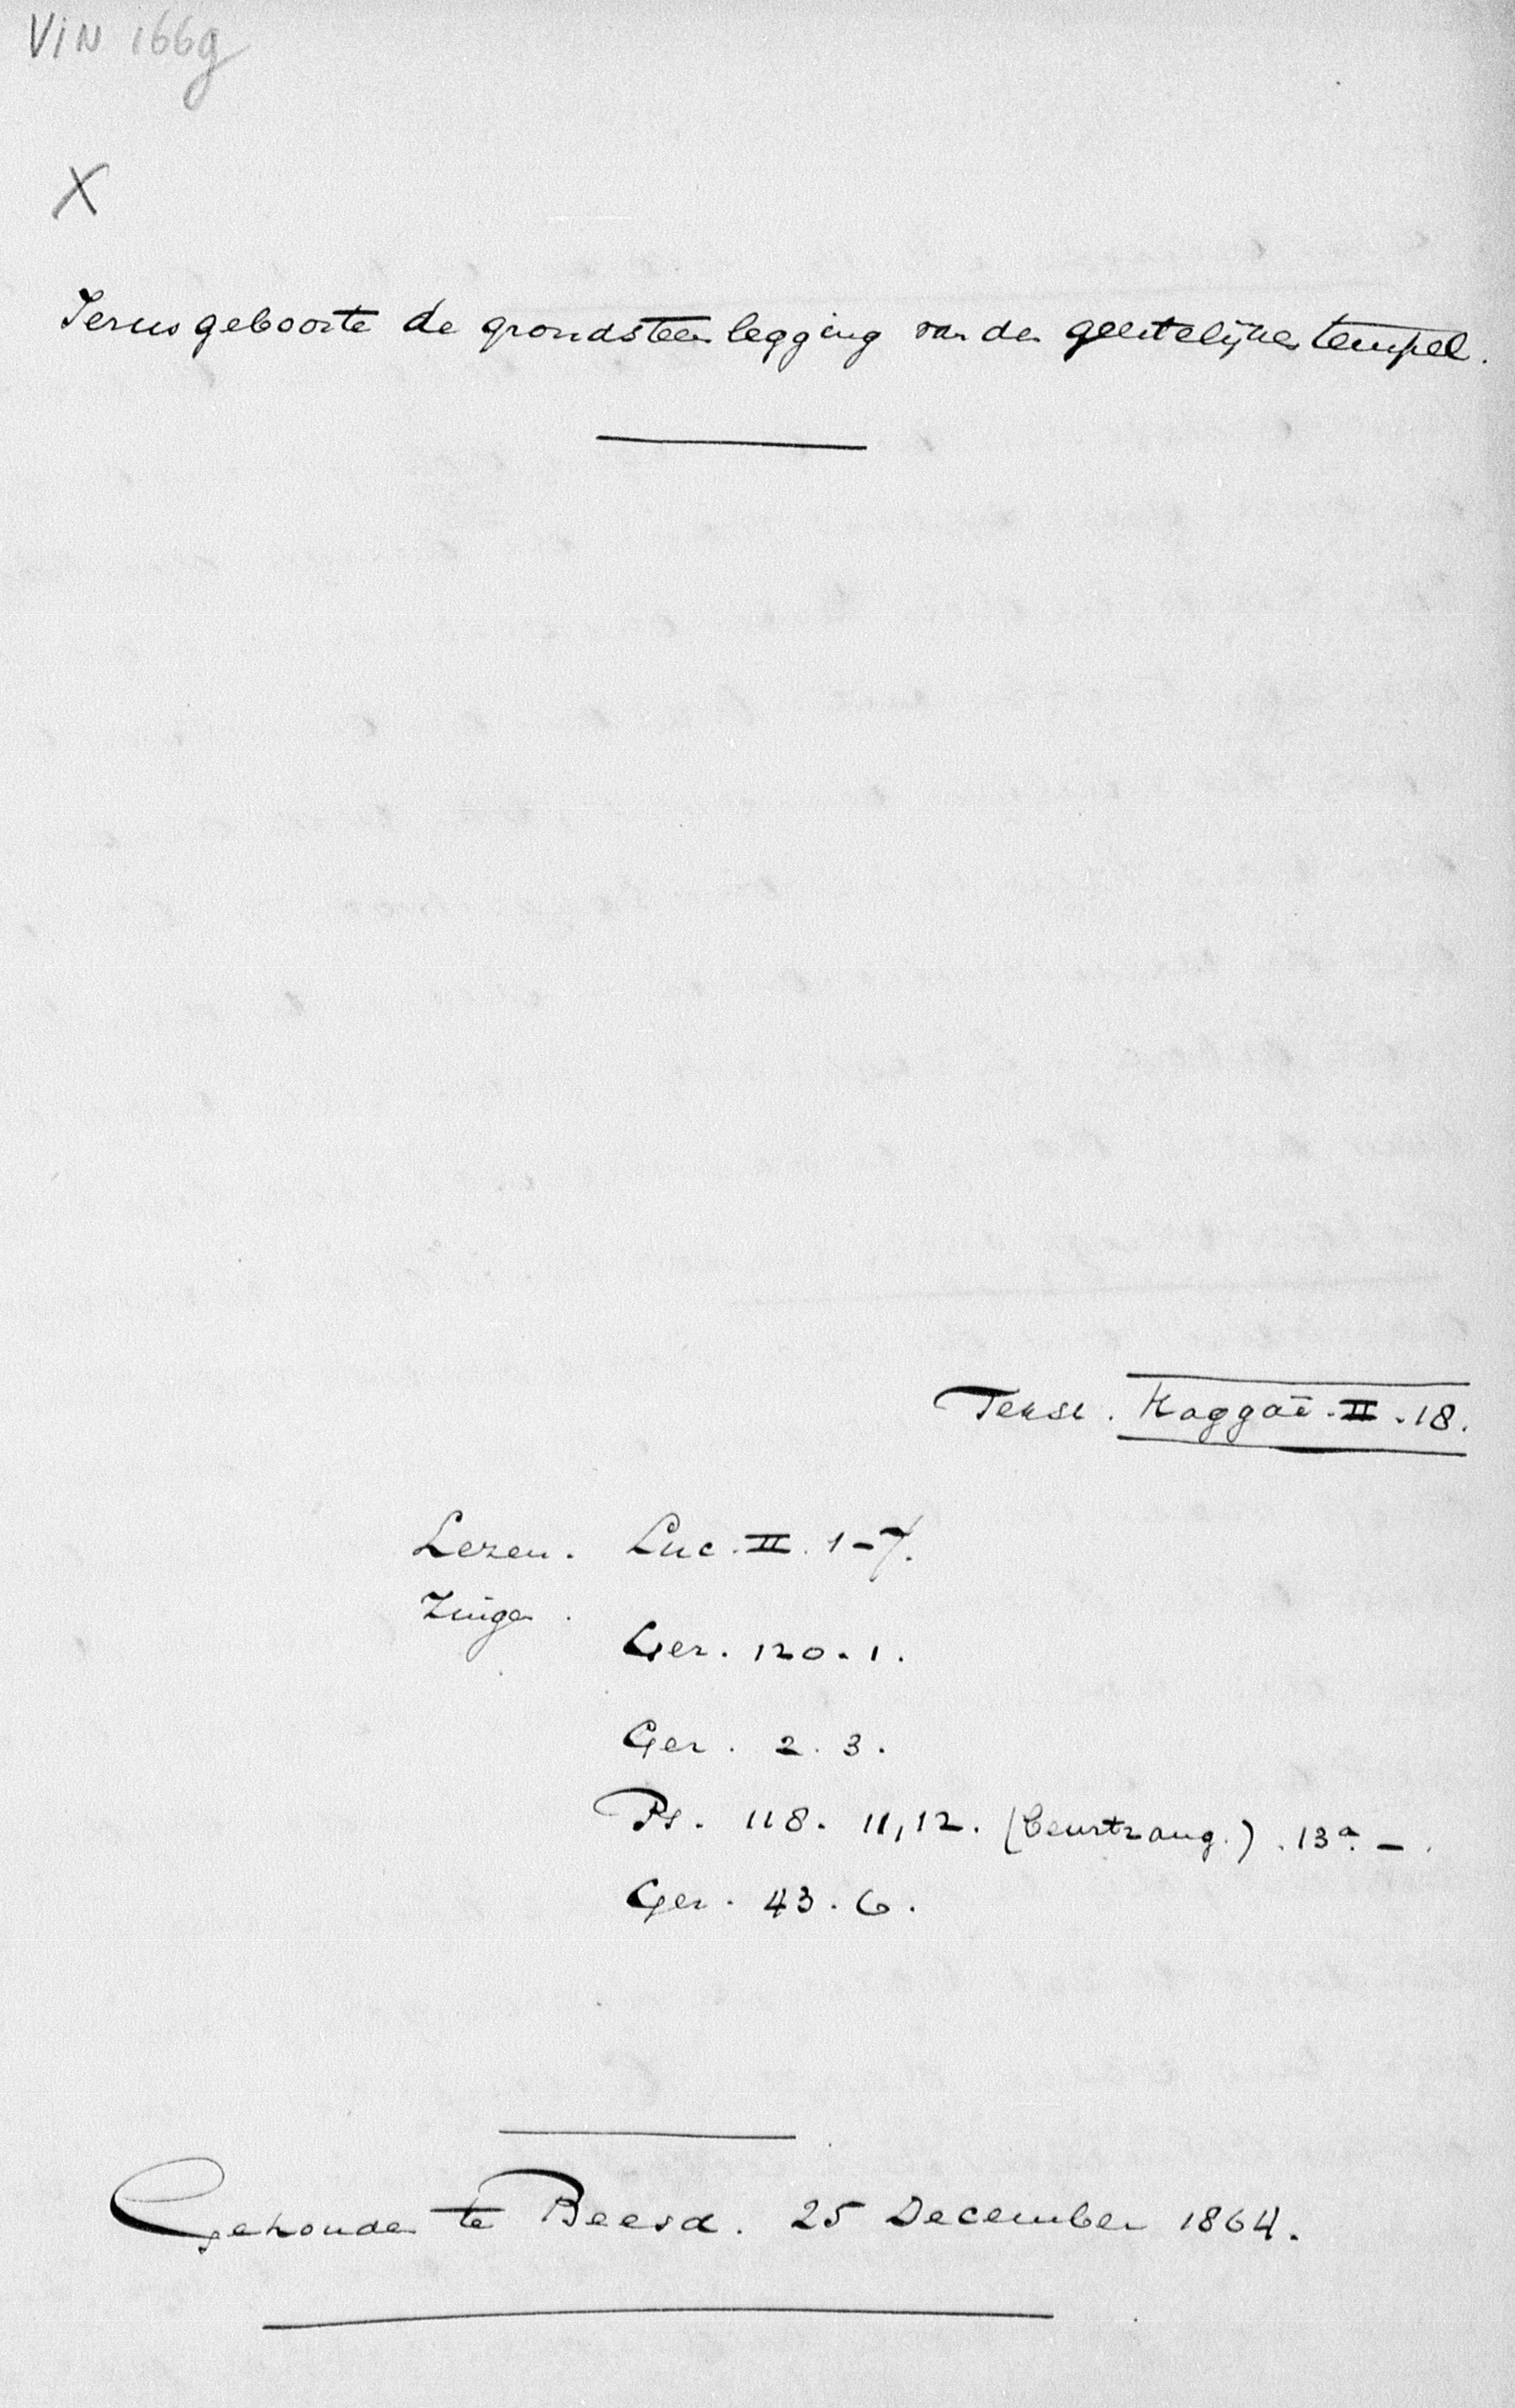 VIN 166g
X
Jezus geboorte de grondsteenlegging van den geestelijken tempel.
Tekst. Haggaï. II. 18.
Lezen. Luc. II. 1-7.
Zingen.
Gez. 120. 1.
Gez. 2. 3.
Ps. 118. 11, 12. (beurtzang.). 13a. -.
Gez. 43. 6.
Gehouden te Beesd. 25 December 1864.